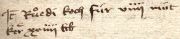 It Ruͦedi koch für viiii müt
ker[n] xviiii lb